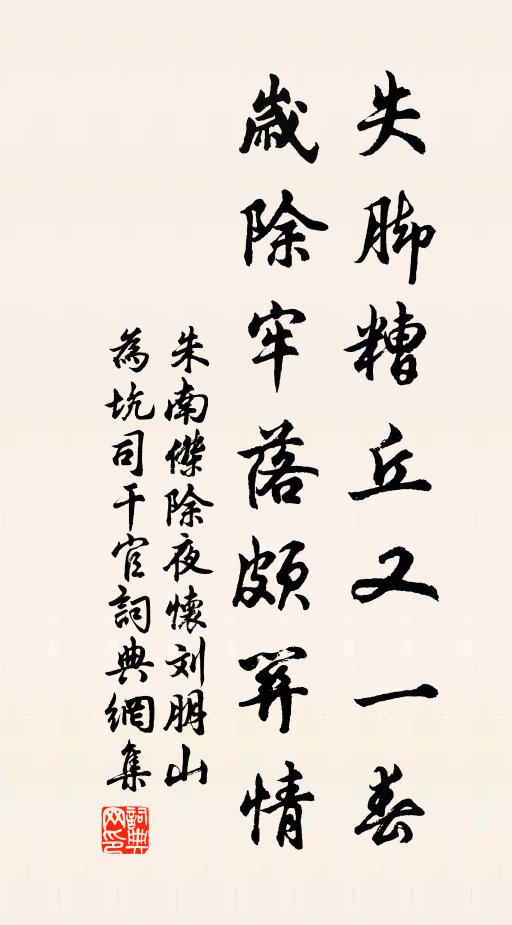 失脚糟丘又一春
歲除牢落頗關情
朱南傑除夜懷刘朋山
為坑司干官詞典網集
詞典
网印